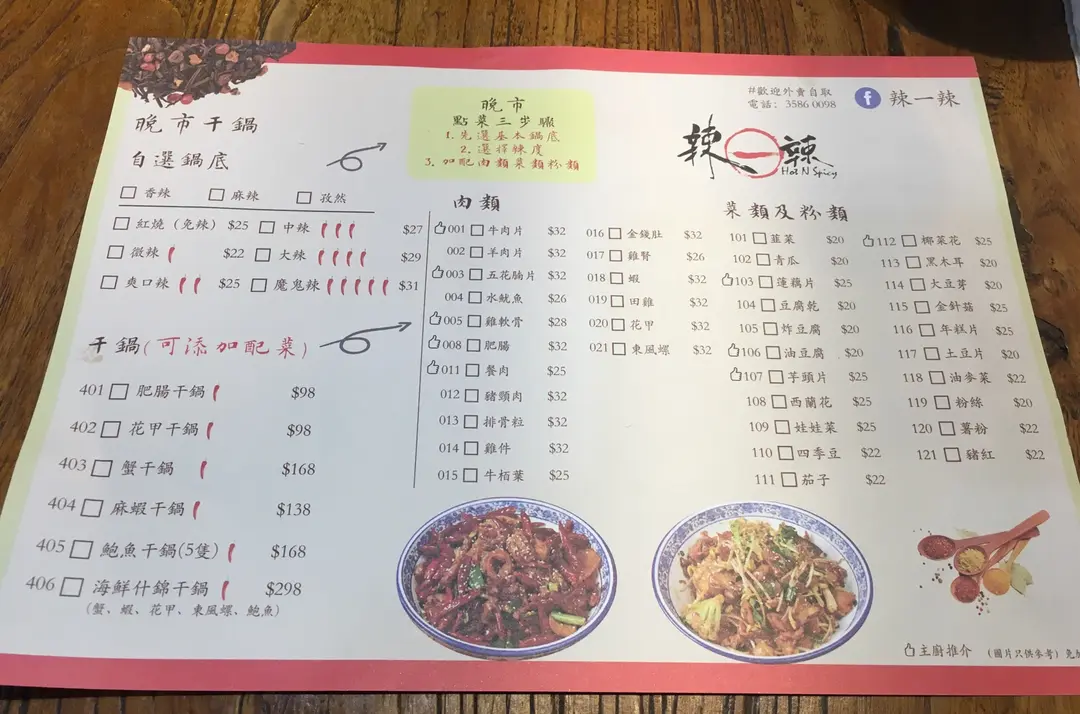 晚市干鍋
自選鍋底
香辣 麻辣 孜然
紅燒 (免辣) $25 中辣 $27
微辣 $22 大辣 $29
爽口辣 $25 魔鬼辣 $31
干鍋(可添加配菜)
401 肥腸干鍋 $98
402 花甲干鍋 $98
403 蟹干鍋 $168
404 麻蝦干鍋 $138
405 鮑魚干鍋(5隻) $168
406 海鮮什錦干鍋 $298
(蟹、蝦、花甲、東風螺、鮑魚)
晚市
點菜三步驟
1. 先選基本鍋底
2. 選擇辣度
3. 加配肉類菜類粉類
#歡迎外賣自取
電話: 3586 0098
f 辣一辣
辣一辣
Hot N Spicy
肉類
001 牛肉片 $32
002 羊肉片 $32
003 五花腩片 $32
004 水魷魚 $26
005 雞軟骨 $28
008 肥腸 $32
011 餐肉 $25
012 豬頸肉 $32
013 排骨粒 $32
014 雞件 $32
015 牛栢葉 $25
016 金錢肚 $32
017 雞腎 $26
018 蝦 $32
019 田雞 $32
020 花甲 $32
021 東風螺 $32
菜類及粉類
101 韮菜 $20
102 青瓜 $20
103 蓮藕片 $25
104 豆腐乾 $20
105 炸豆腐 $20
106 油豆腐 $20
107 芋頭片 $25
108 西蘭花 $25
109 娃娃菜 $25
110 四季豆 $22
111 茄子 $22
112 椰菜花 $25
113 黑木耳 $20
114 大豆芽 $20
115 金針菇 $25
116 年糕片 $25
117 土豆片 $20
118 油麥菜 $22
119 粉絲 $20
120 薯粉 $22
121 豬紅 $22
主廚推介 (圖片只供參考)